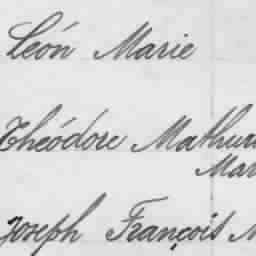 León Marie
Théódore Mathur
Mar
Joseph François M